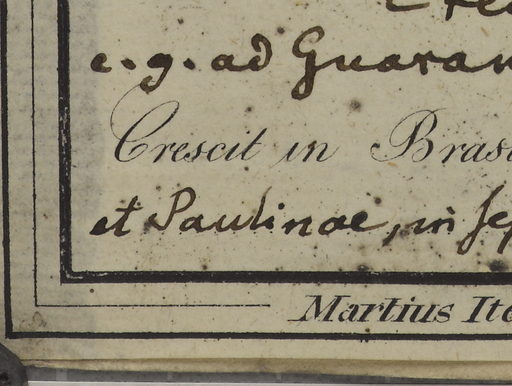 e.g. ad Guaran
Crescit in Bras
et Paulinae, in Sep
Martius Ite